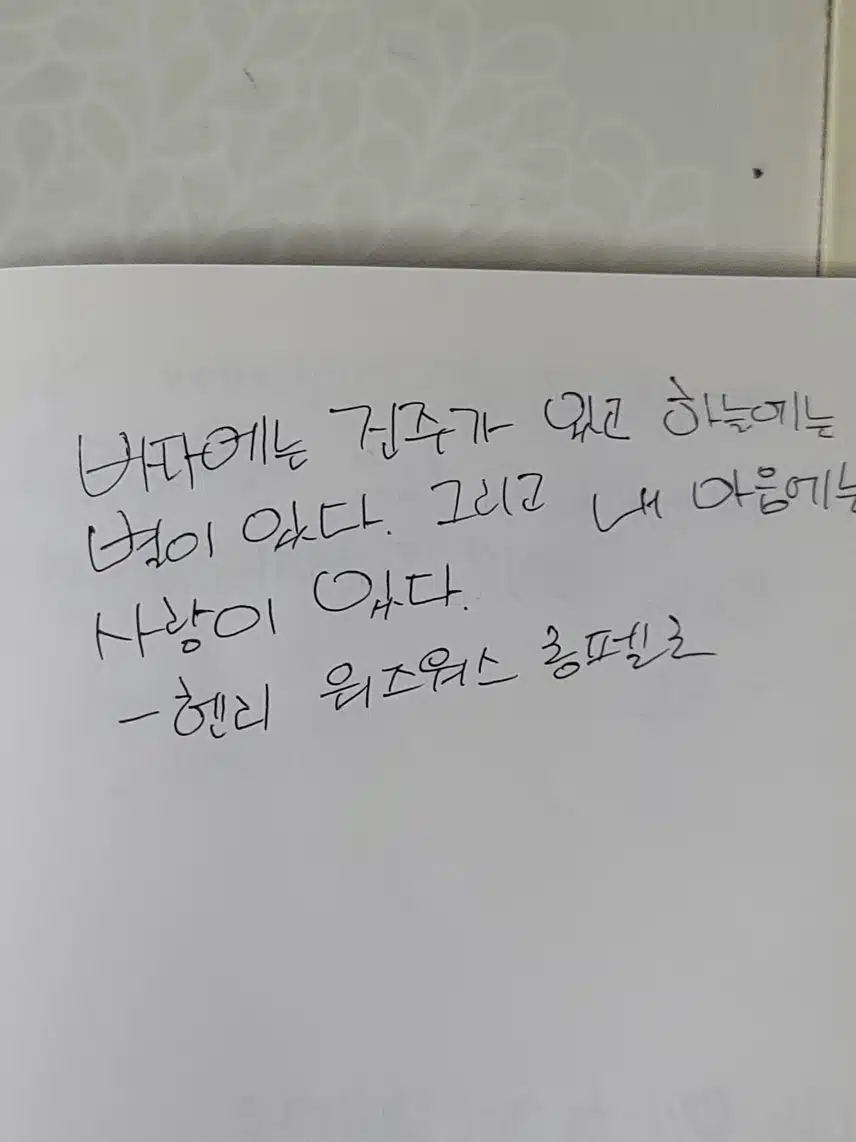 바다에는 진주가 있고 하늘에는
별이 있다. 그리고 내 마음에는
사랑이 있다.
- 헨리 워즈워스 롱펠로